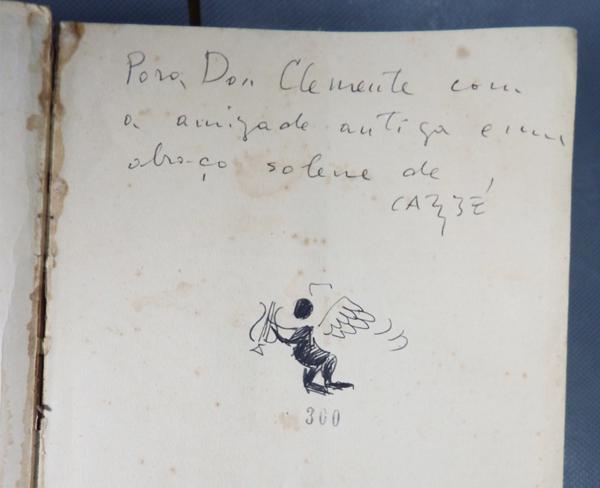 Para Don Clemente com
a amizade antiga e um
abraço solene de
CARYBÉ
300